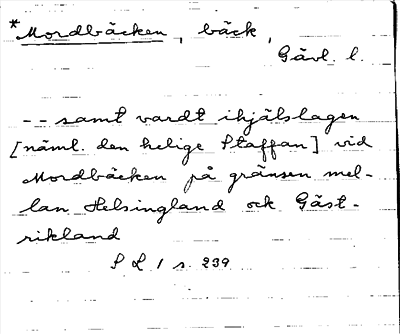 *Mordbäcken, bäck,
Gävl. l.
-- samt vardt ihjälslagen
[näml. den helige Staffan] vid
Mordbäcken på gränsen mel-
lan Helsingland och Gäst-
rikland
S L 1 s. 239